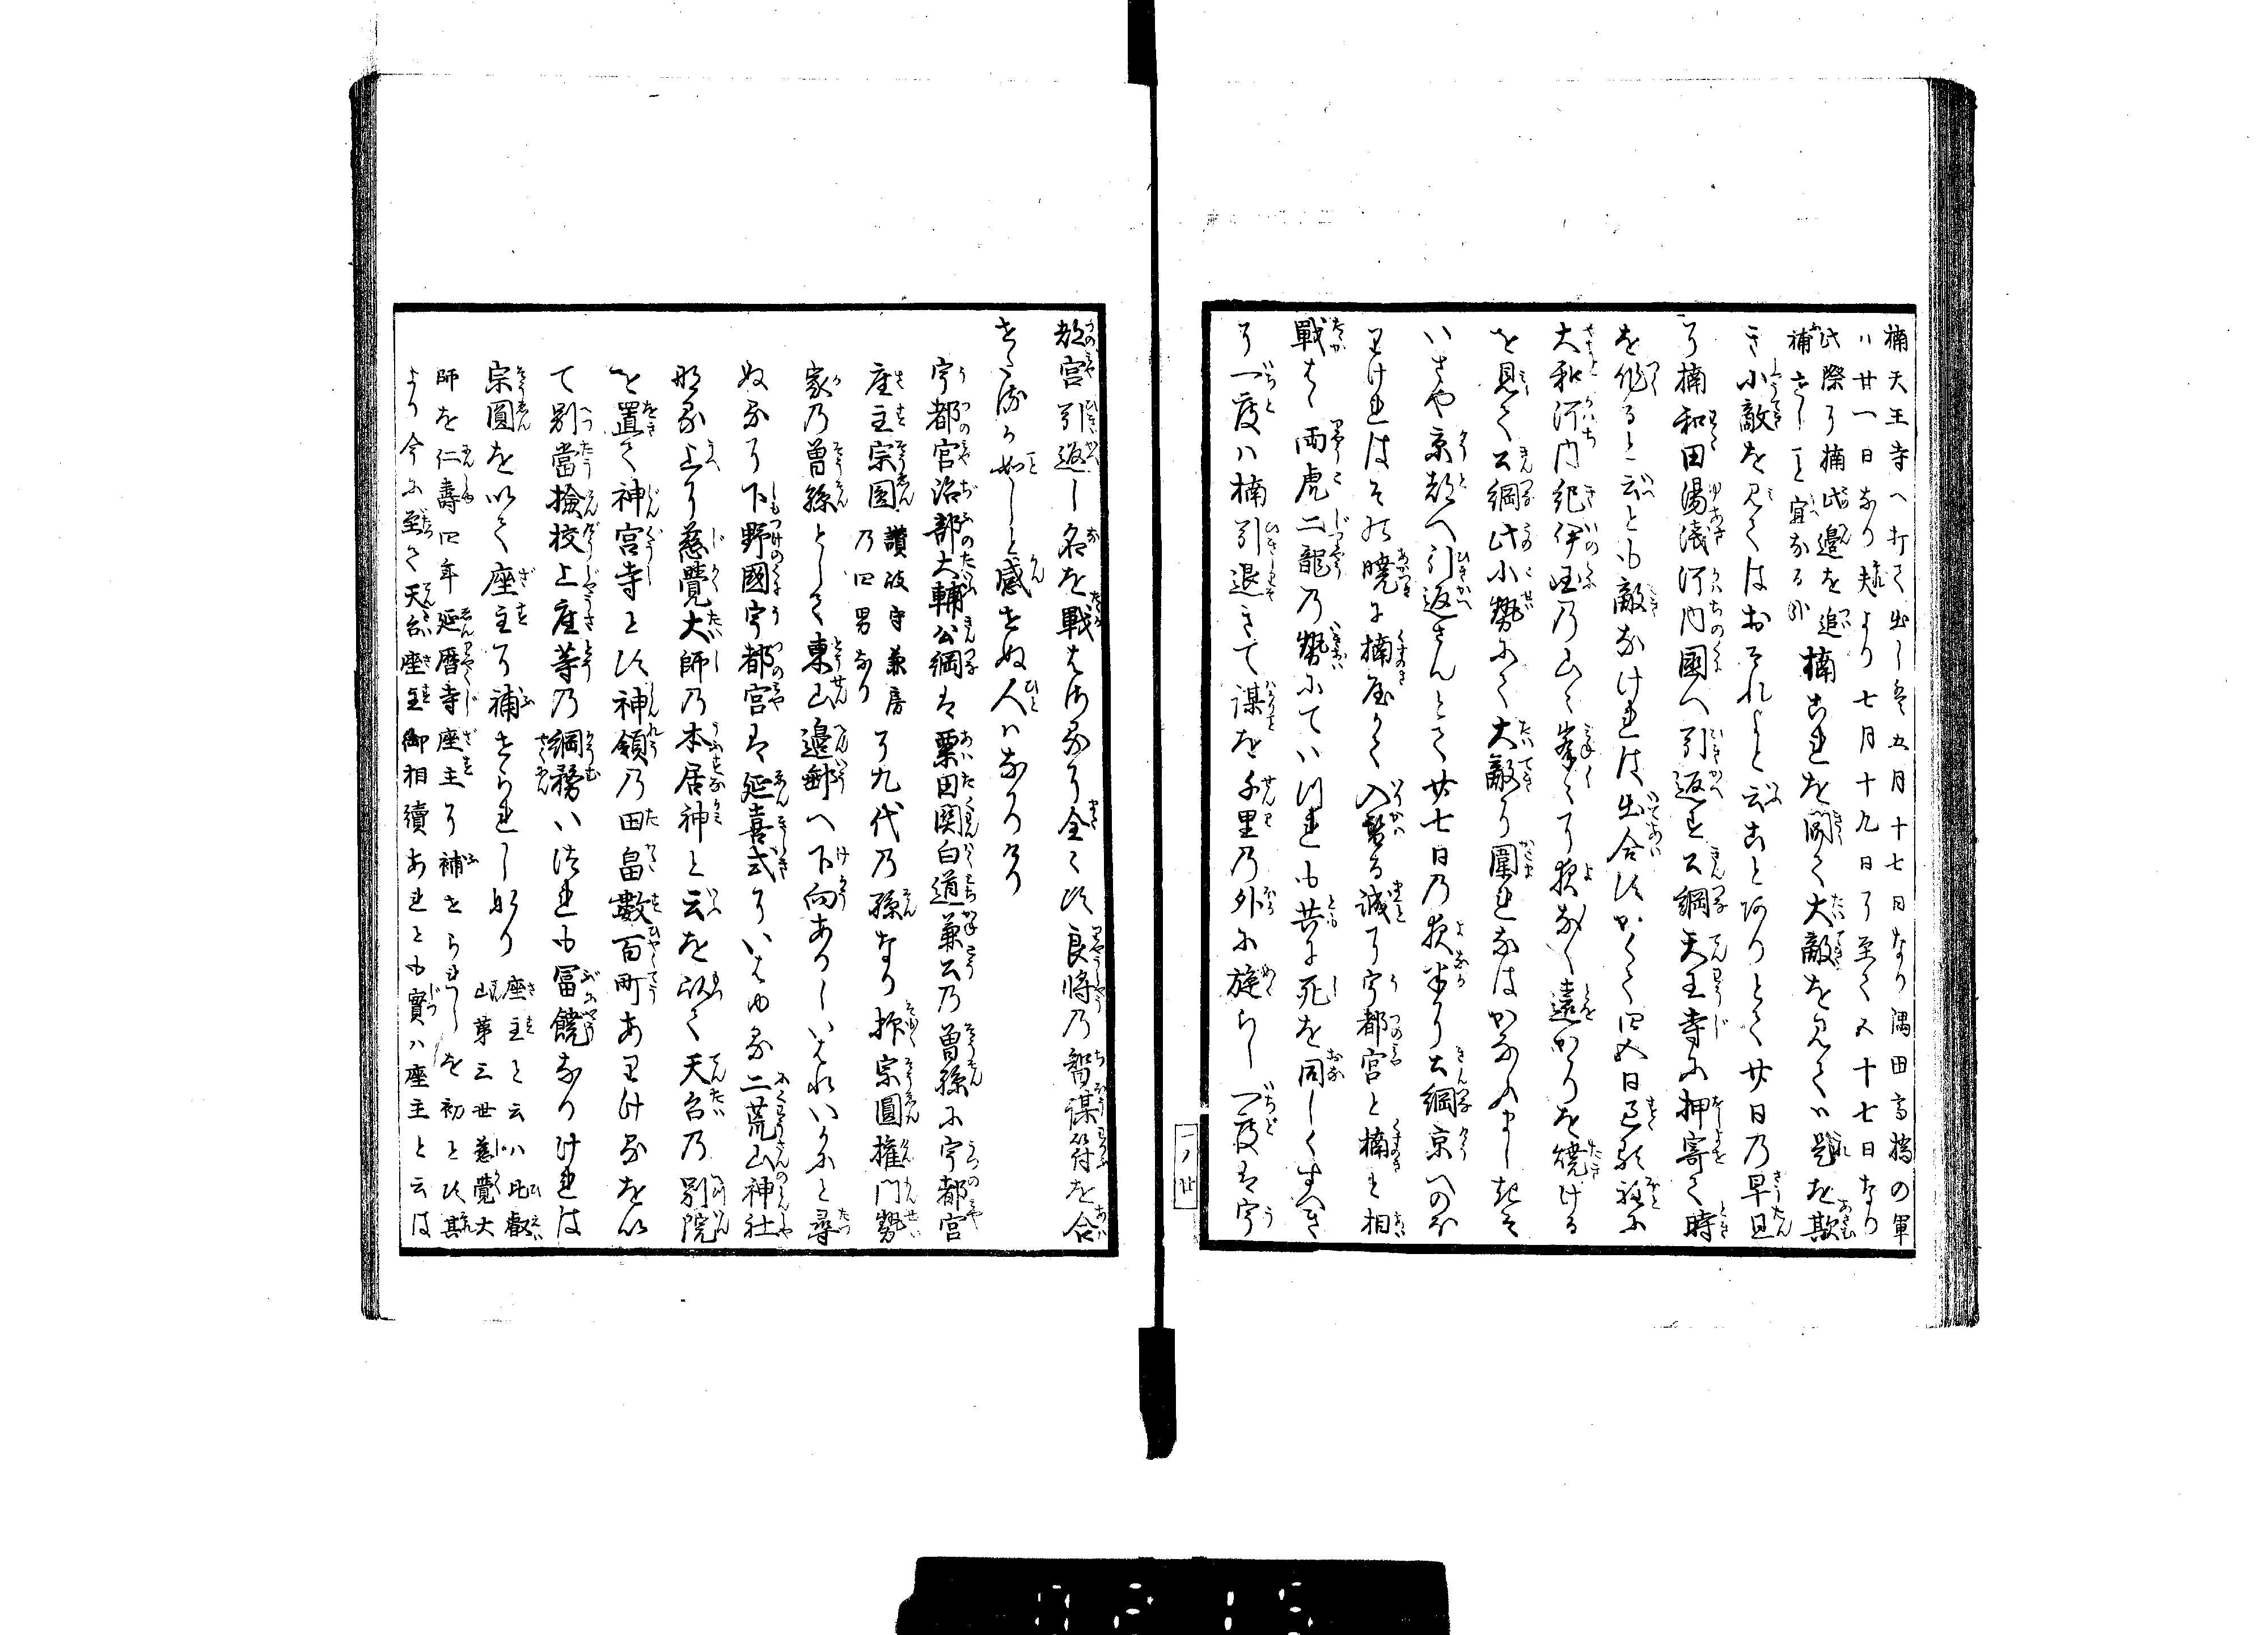 楠天王寺へ打て出しハ五月十七日なり隅田高橋の軍
ハ廿一日なり夫より七月十九日に至て又十七日なり
此際に楠此邊を追
補せし
楠これを聞て大敵を見てハ是を欺
き小敵を見てはおそれよと云ことありとて廿日の早旦
に楠和田湯淺河内國へ引返す公綱天王寺に押寄て時
を作ると云とも敵なけれは出合すかくて四五日を
大和河内紀伊國の山々峯々に夜なく遠かゝりを燒ける
を見て公綱此小勢にて大敵に圍れなは
いさや京都へ引返さんとて廿七日の夜半に公綱京へのほ
りけれはその曉に楠
入替る誠に宇都宮と楠と相
戰はゝ両虎二龍の勢にていつれも共に死を同しくすへき
に一度ハ楠引退きて謀を千里の外に施らし一度は宇
都宮引返し名を戰
全くす良將の智謀符を合
せたるか如しと感せぬ人ハなかりけり
宇都宮治部大輔公綱は粟田関白道兼公の曽孫に宇都宮
座主宗圓讃岐守兼房
の四男なりに九代の孫なり抑宗圓權門勢
家の曽孫として東山邉鄙へ下向ありしいはれいかにと尋
ぬるに下野國宇都宮は延喜式にいはゆる二荒山神社
なる上に慈覺大師の本居神と云を以て天台の別院
を置て神宮寺とす神領の田畠數百町ありけるを以
て別當撿挍上座等の綱務いつれも冨饒なりけれは
宗圓を以て座主に補せられしなり座主と云ハ比叡
山第三世慈覺大
師を仁壽四年延暦寺座主に補せられしを初とす其
より今に至て天台座主御相續あれとも實ハ座主と云は
一ノ廿